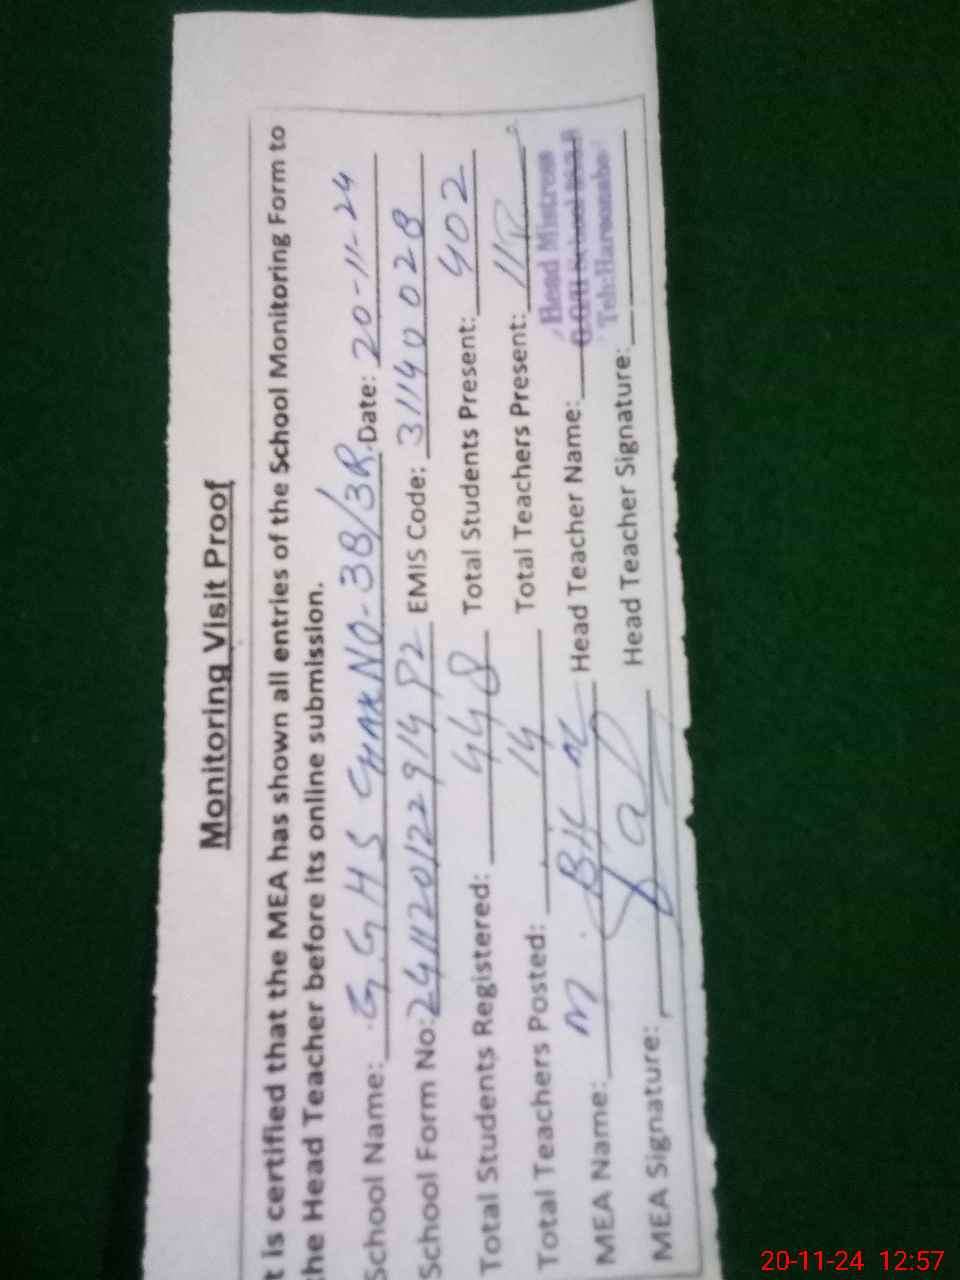 Monitoring Visit Proof
t is certified that the MEA has shown all entries of the School Monitoring Form to
the Head Teacher before its online submission.
School Name: G G H S CHAK NO-38/3R. Date: 20-11-24
School Form No: EMIS Code: 31140028
Total Students Registered: 448 Total Students Present: 402
Total Teachers Posted: 14 Total Teachers Present: 11
MEA Name: M. Head Teacher Name: Head Mistress
MEA Signature: Head Teacher Signature:
20-11-24 12:57